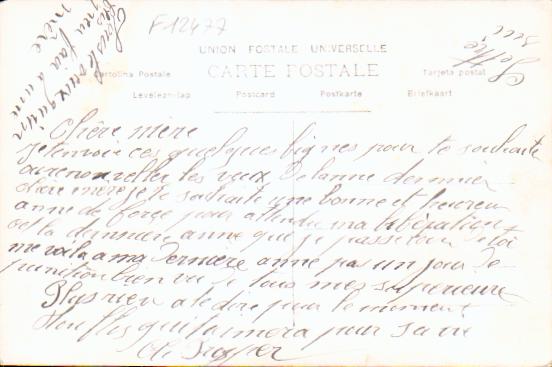 F12477
UNION POSTALE UNIVERSELLE
CARTE POSTALE
Cartolina Postale
Tarjeta postal
Levelezö-lap
Postcard
Postkarte
Briefkaart
Chère mère
je tenvoie ces quelques lignes pour te souhaite
les veux de lanne dernier
chère mère je te souhaite une bonne et heureu
anne de force pour attendre ma libération
est la derniere anne que je passe loin de toi
me voila a ma derniere anne pas un jour de
punition bien vu de tous mes supérieure
Plus rien a te dire pour le moment
ton fils qui taimera pour sa vie